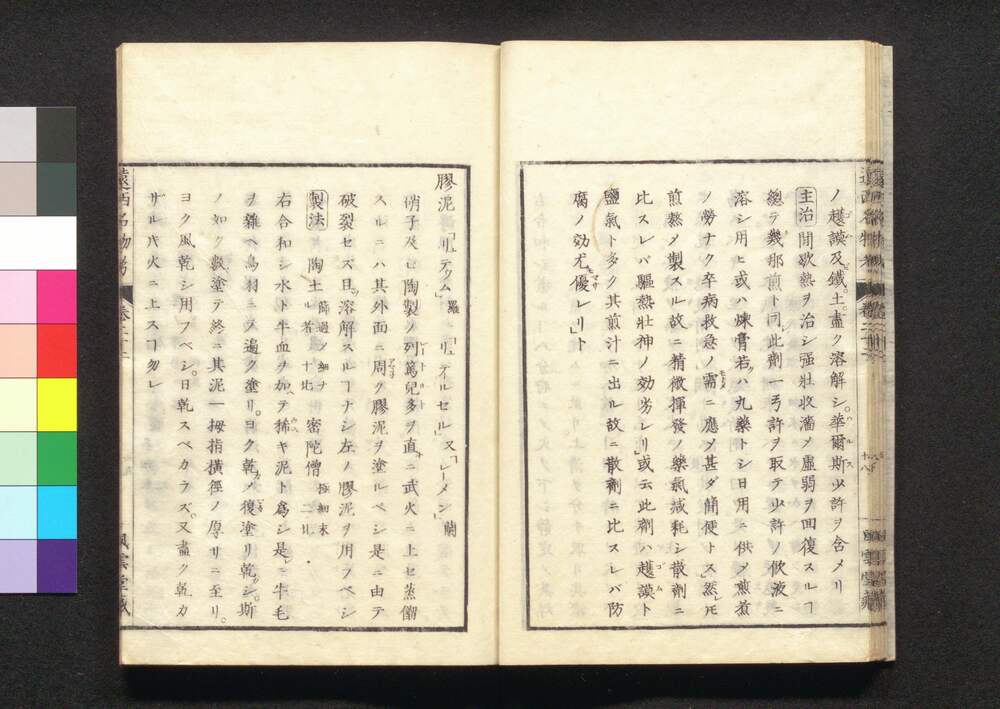 ノ越謨及ヒ鐵土盡ク溶解シ。華爾斯少許ヲ含メリ
主治 間歇熱ヲ治シ强壯收濇ノ虚弱ヲ回復スルヿ
總テ幾那煎ト同シ此劑一弓許ヲ取テ少許ノ飲液ニ
溶シ用ヒ或ハ煉膏若クハ丸藥トシ日用ニ供ソ煎煮
ノ勞ナク卒病救急ノ需ニ應メ甚タ簡便トス然レ𪜈
煎熬メ製スル故ニ精微揮發ノ藥氣減耗シ散劑ニ
比スレバ驅熱壯神ノ効劣レリ或云此劑ハ越謨ト
鹽氣ト多ク其煎汁ニ出ル故ニ散劑ニ比スレバ防
腐ノ効尤優レリト
膠泥「リュテウム」羅「リュテイルセル」又「レーメン」蘭
硝子及ヒ陶製ノ列篤兒多ヲ直ニ武火ニ上セ蒸餾
スルニハ其外面ニ周ク膠泥ヲ塗ルベシ是ニ由テ
破裂セズ且ツ溶解スルヿナシ左ノ膠泥ヲ用フベシ
製法 陶土 篩過ノ細ナル者十比 密陀僧 極細末二比
右合和シ水ト牛血ヲ加ヘテ搗キ泥ト爲シ是ニ牛毛
ヲ雜ヘ鳥羽ニテ遍ク塗リ。ヨク乾メ復塗リ乾シ。斯
ノ如ク數塗テ終ニ其泥一拇指横徑ノ厚サニ至リ。
ヨク風乾シ用フベシ。日乾スベカラズ又盡ク乾カ
サル内火ニ上スヿ勿レ
遠西名物考 卷二十二
風雲堂藏